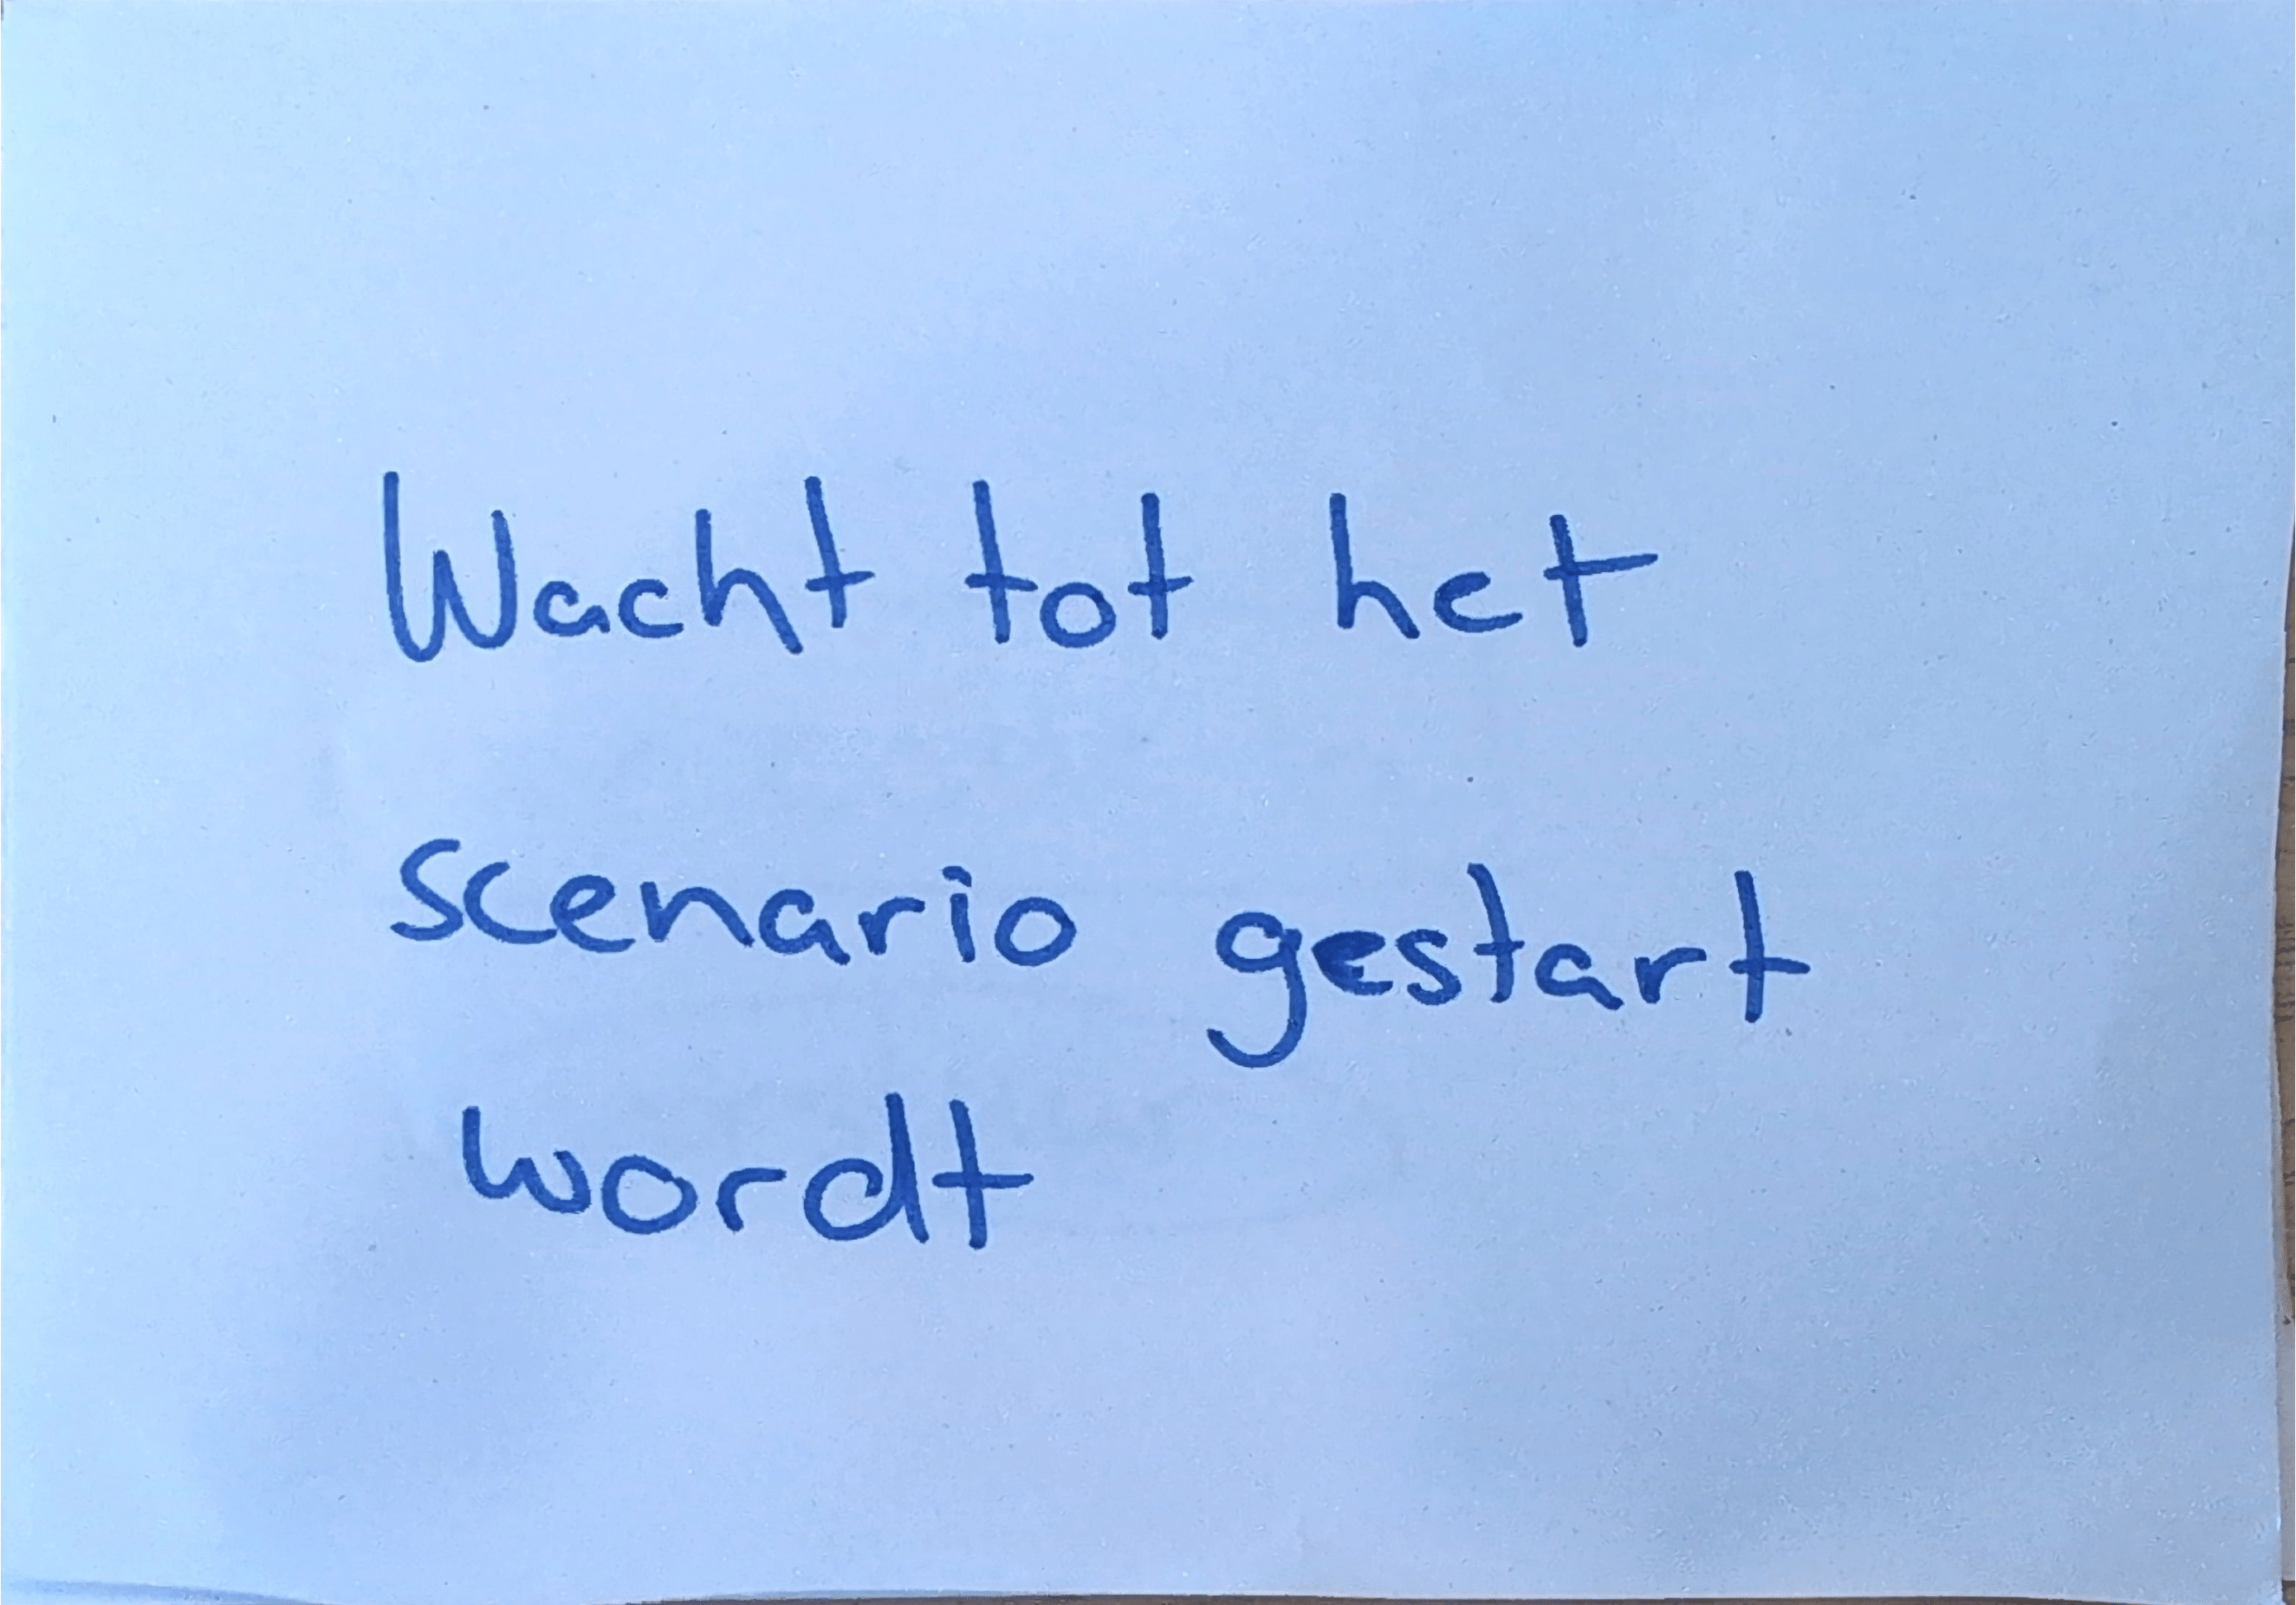 Wacht tot het
scenario gestart
wordt